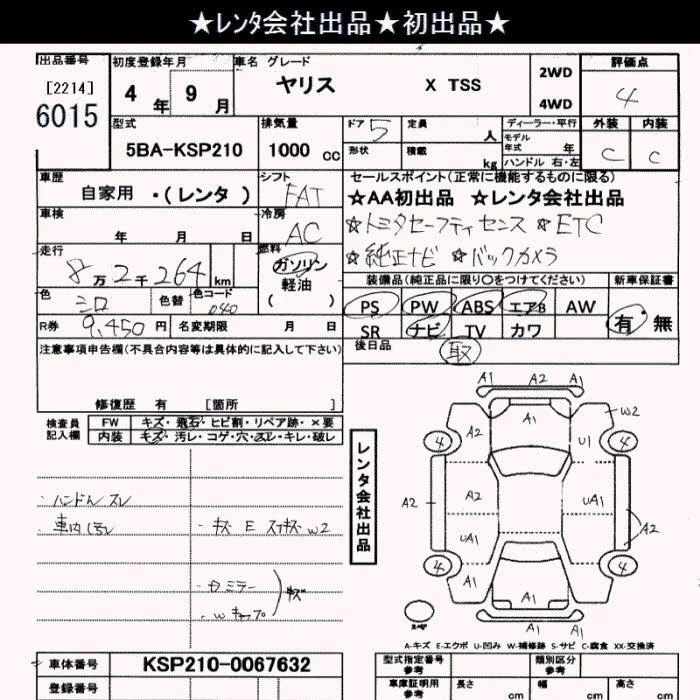 ★レンタ会社出品★初出品★
出品番号 初度登録年月 車名 グレード 評価点
[2214] 4年 9月 ヤリス X TSS 2WD 4
6015 4WD 外装 内装
型式 排気量 ドア 5 定員 人 ディーラー・平行 C C
5BA-KSP210 1000 cc 形状 積載 kg モデル年式 年
ハンドル 右・左
車歴 シフト セールスポイント(正常に機能するものに限る)
自家用 ・(レンタ ) FAT ★AA初出品 ★レンタ会社出品
車検 冷房 ☆トヨタセーフティセンス ☆ETC
年 月 日 AC ☆純正ナビ ☆バックカメラ
走行 燃料
8万2千264km ガソリン 装備品(純正品に限り○をつけてください) 新車保証書
軽油
色 色替 色コード ( ) PS PW ABS エアB AW 有・無
シロ 040 SR ナビ TV カワ
R券 9,450円 名変期限 月 日 後日品 取
注意事項申告欄(不具合内容等は具体的に記入して下さい)
修復歴 有 [箇所 ]
検査員記入欄 FW キズ・飛石・ヒビ割・リペア跡・×要
内装 キズ・汚レ・コゲ・穴・スレ・キレ・破レ
レンタ会社出品
・ハンドル スレ
・車内汚レ ・キズ E スイキズ W2
・ミラー
・Wキャップ キズ
A1 A2 A1
A1 W2
A2 U1
4 4
A2 A2 UA1 A2
UA1 UA1
4 4
A1 A1
A1 A1 A1
A-キズ E-エクボ U-凹ミ W-補修跡 S-サビ C-腐食 XX-交換済
車体番号 KSP210-0067632 型式指定番号 参考 類別区分 参考
登録番号 車庫証明用 参考 長さ cm 幅 cm 高さ cm